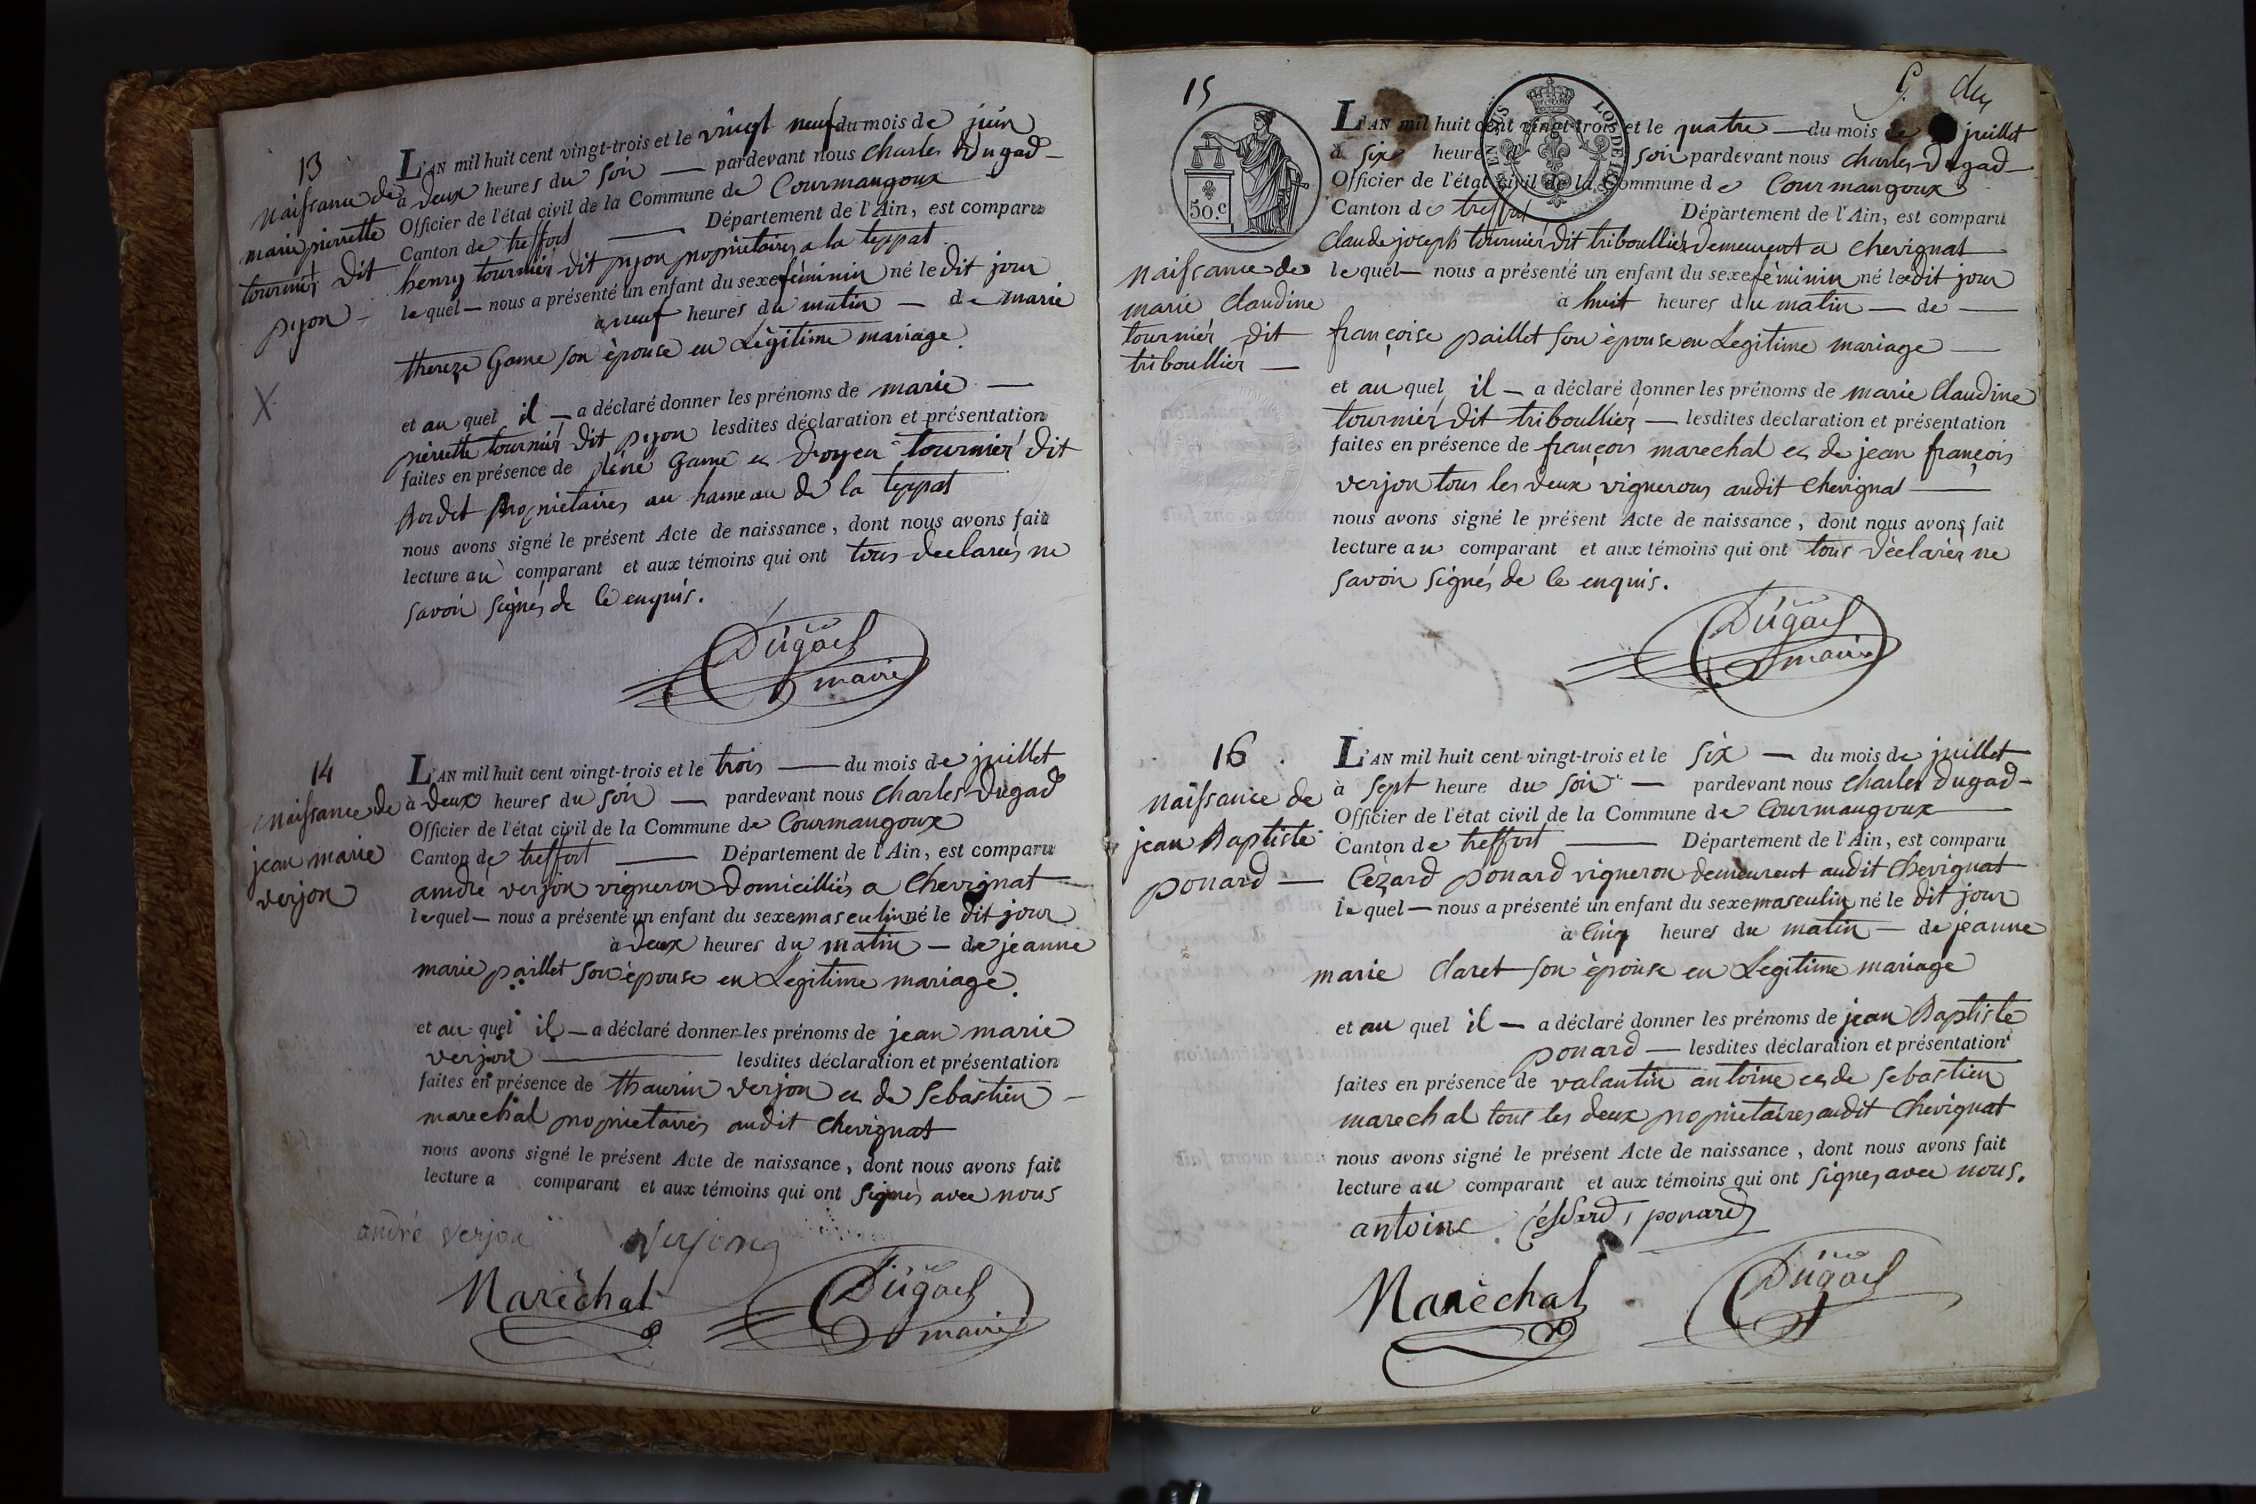 13
Naissance de
marie pierrette
tournier dit
pyon
L'AN mil huit cent vingt-trois et le vingt neuf du mois de juin
à deux heures du soir — pardevant nous Charles Dugad
Officier de l'état civil de la Commune de Courmangoux
Canton de treffort — Département de l'Ain, est comparu
henry tournier dit pyon propriétaires a la teppat
lequel — nous a présenté un enfant du sexe féminin né le dit jour
à neuf heures du matin — de marie
thereze Game son èpouse en Légitime mariage
et au quel il — a déclaré donner les prénoms de marie —
pierrette tournier dit pyon lesdites déclaration et présentation
faites en présence de Game et tournier dit
Bordet propriétaires au hameau de la teppat
nous avons signé le présent Acte de naissance, dont nous avons fait
lecture au comparant et aux témoins qui ont tous declarés ne
savoir signés de ce enquis.
Dugad
maire
14
Naissance de
jean marie
verjon
L'AN mil huit cent vingt-trois et le trois — du mois de juillet
à deux heures du soir — pardevant nous Charles Dugad
Officier de l'état civil de la Commune de Courmangoux
Canton de treffort — Département de l'Ain, est comparu
andré verjon vigneron domicilliés a Chevignat
lequel — nous a présenté un enfant du sexe masculin né le dit jour
à deux heures du matin — de jeanne
marie paillet son èpouse en Legitime mariage.
et au quel il — a déclaré donner les prénoms de jean marie
verjon — lesdites déclaration et présentation
faites en présence de thaurin verjon et de Sebastien —
marechal propriétaires audit Chevignat
nous avons signé le présent Acte de naissance, dont nous avons fait
lecture a comparant et aux témoins qui ont signés avec nous
andré verjon verjon
Maréchal Dugad
maire
15
50.c
G. de
Naissance de
marie Claudine
tournier dit
triboullier —
L'AN mil huit cent vingt-trois et le quatre — du mois de juillet
à six heure soir pardevant nous Charles Dugad
Officier de l'état civil de la Commune de Courmangoux
Canton de treffort Département de l'Ain, est comparu
Claude joseph tournier dit triboullier demeurent a Chevignat
lequel — nous a présenté un enfant du sexe féminin né ledit jour
à huit heures du matin — de —
françoise paillet son èpouse en Legitime mariage —
et au quel il — a déclaré donner les prénoms de marie Claudine
tournier dit triboullier — lesdites déclaration et présentation
faites en présence de françois marechal et de jean françois
verjon tous les deux vignerons audit Chevignat —
nous avons signé le présent Acte de naissance, dont nous avons fait
lecture au comparant et aux témoins qui ont tous déclarés ne
savoir signés de ce enquis.
Dugad
maire
16
Naissance de
jean Baptiste
ponard —
L'AN mil huit cent vingt-trois et le six — du mois de juillet
à sept heure du soir — pardevant nous Charles Dugad —
Officier de l'état civil de la Commune de Courmangoux
Canton de treffort — Département de l'Ain, est comparu
Cézard ponard vigneron demeurent audit Chevignat
lequel — nous a présenté un enfant du sexe masculin né le dit jour
à Cinq heures du matin — de jeanne
marie Claret son èpouse en Legitime mariage
et au quel il — a déclaré donner les prénoms de jean Baptiste
ponard — lesdites déclaration et présentation
faites en présence de valantin antoine et de sebastien
marechal tous les deux propriétaires audit Chevignat
nous avons signé le présent Acte de naissance, dont nous avons fait
lecture au comparant et aux témoins qui ont signés avec nous.
antoine ponard
Maréchal Dugad